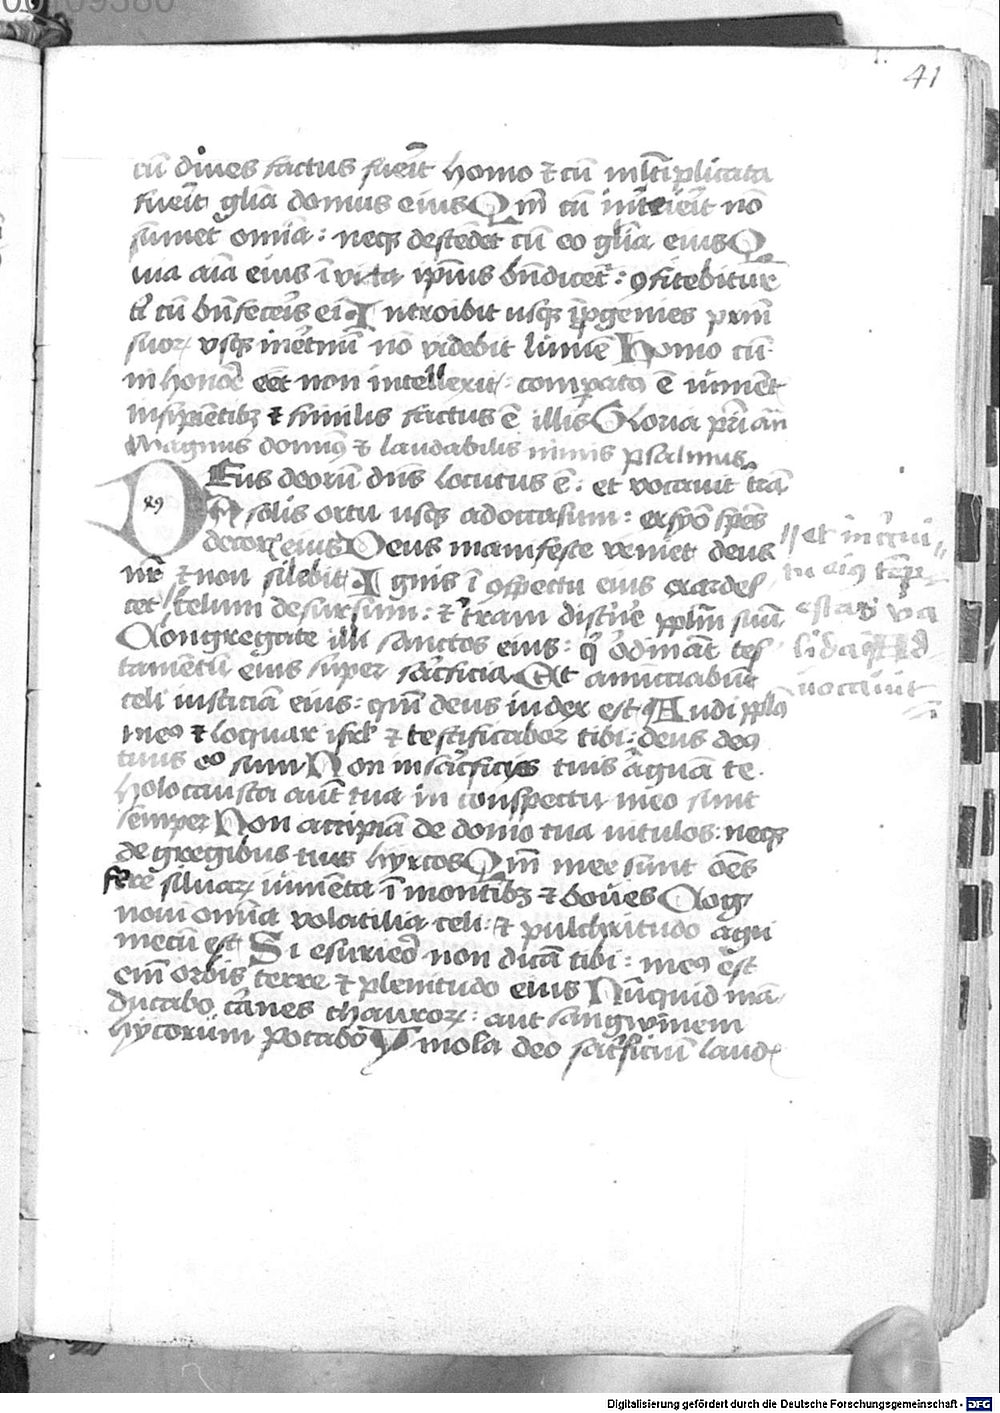 41
cū diues factus fuerit homo ⁊ cū mlti plicata
fuerit glīa domus eius Qm̄ cū interierit nō
sumet omīa : neqꝫ descēdet cū eo glīa eius Q
uia aīa eius ī vita ipīus bn̄dicet : ꝯfitebitur
t' cū bn̄feceris ei Introibit usqꝫ ī ꝓgenies prm̄
suoꝝ vsqꝫ inetnū nō videbit lumē Homo cū
in honore eēt non intellexit : compatꝰ ē iumēt
insipiētibꝫ ⁊ similis factus ē illis Gloria pr̄i añ
Magnus domīꝰ ⁊ laudabilis nimis psalmus
DEus deorū dn̄s locutus ē : et vocauit trā
A solis ortu usqꝫ ad occasum : ex syō spēs
decoꝝ eius Deus manifeste veniet deus
nr̄ ⁊ non silebit Ignis ī ꝯspectu eius exardes
cet // et in circui
tu eiꝰ tēpe
stas va
lida Ad
uocauit
celum desursum : ⁊ tram discn̄e pplm̄ suū
Congregate illi sanctos eius : q̄ ordināt tes
tamētū eius super sacrficia Et annūciabūt
celi iusticiā eius : qm̄ deus iudex est Audi pplꝰ
meꝰ ⁊ loquar isrl ⁊ testificabor tibi : deus deꝰ
tuus ego sum Non in sacrficiis tuis arguā te
holocausta aūt tua in conspectu meo sunt
semper Non accipiā de domo tua uitulos : neqꝫ
de gregibus tuis hyrcos Qm̄ mee sunt oēs
fere siluaꝝ iumēta ī montibꝫ ⁊ boues Cog
noui omīa volatilia celi : ⁊ pulchritudo agri
mecū est Si esuriero non dicā tibi : meꝰ est
em̄ orbis terre ⁊ plenitudo eius Nūquid mā
ducabo carnes thauroꝝ : aut sangwinem
hyrcorum potabo Ymola deo sacrficiū laud
Digitalisierung gefördert durch die Deutsche Forschungsgemeinschaft - DFG